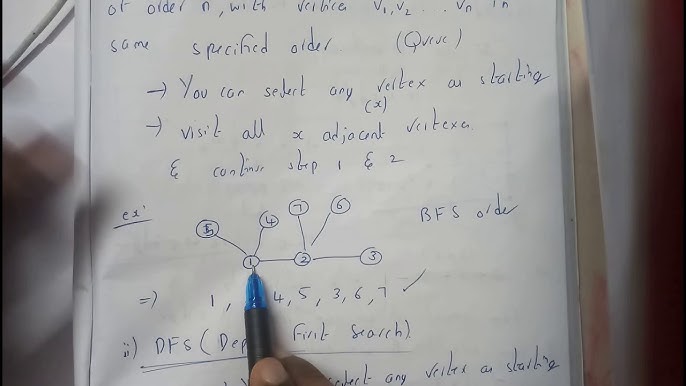 of order n, with vertice v1, v2 ... vn in
same specified order. (Queue)
→ You can select any vertex as starting
(x)
→ visit all x adjacent vertexes
& continue step 1 & 2
ex:
5 4 7 6
BFS order
1 2 3
=) 1, 4, 5, 3, 6, 7 ✓
ii) DFS (Dep First Search)
select any vertex as starting